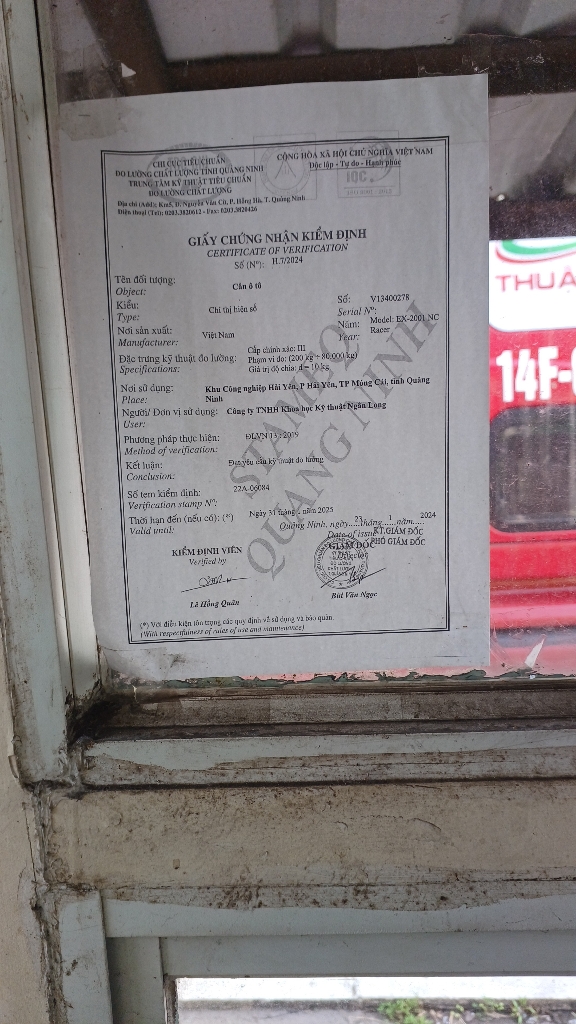 CHI CỤC TIÊU CHUẨN
ĐO LƯỜNG CHẤT LƯỢNG TỈNH QUẢNG NINH
TRUNG TÂM KỸ THUẬT TIÊU CHUẨN
ĐO LƯỜNG CHẤT LƯỢNG
Địa chỉ (Add): Km5, Đ. Nguyễn Văn Cừ, P. Hồng Hà, T. Quảng Ninh
Điện thoại (Tel): 0203.3820612 - Fax: 0203.3820426
CỘNG HÒA XÃ HỘI CHỦ NGHĨA VIỆT NAM
Độc lập - Tự do - Hạnh phúc
IQC
GIẤY CHỨNG NHẬN KIỂM ĐỊNH
CERTIFICATE OF VERIFICATION
Số (Nº): H.7/2024
Tên đối tượng: Cân ô tô
Object:
Kiểu: Chỉ thị hiện số Số: V13400278
Type: Serial Nº:
Nơi sản xuất: Việt Nam Năm: Model: EX-2001 NC
Manufacturer: Year: Racer
Đặc trưng kỹ thuật đo lường: Cấp chính xác: III
Specifications: Phạm vi đo: (200 kg ÷ 80.000 kg)
Giá trị độ chia: d = 10 kg
Nơi sử dụng: Khu Công nghiệp Hải Yên, P Hải Yên, TP Móng Cái, tỉnh Quảng
Place: Ninh
Người/ Đơn vị sử dụng: Công ty TNHH Khoa học Kỹ thuật Ngân Long
User:
Phương pháp thực hiện: ĐLVN 13 : 2019
Method of verification:
Kết luận: Đạt yêu cầu kỹ thuật đo lường
Conclusion:
Số tem kiểm định: 22A.06084
Verification stamp Nº:
Thời hạn đến (nếu có): (*) Ngày 31 tháng 1 năm 2025
Valid until:
Quảng Ninh, ngày 23 tháng 1 năm 2024
Date of issue
KIỂM ĐỊNH VIÊN
Verified by
KT.GIÁM ĐỐC
PHÓ GIÁM ĐỐC
GIÁM ĐỐC
Director
Lê Hồng Quân
Bùi Văn Ngọc
(*) Với điều kiện tôn trọng các quy định về sử dụng và bảo quản.
(With respectfulness of rules of use and maintenance)
STAMEQ
QUANG NINH
THUẬ
14F-